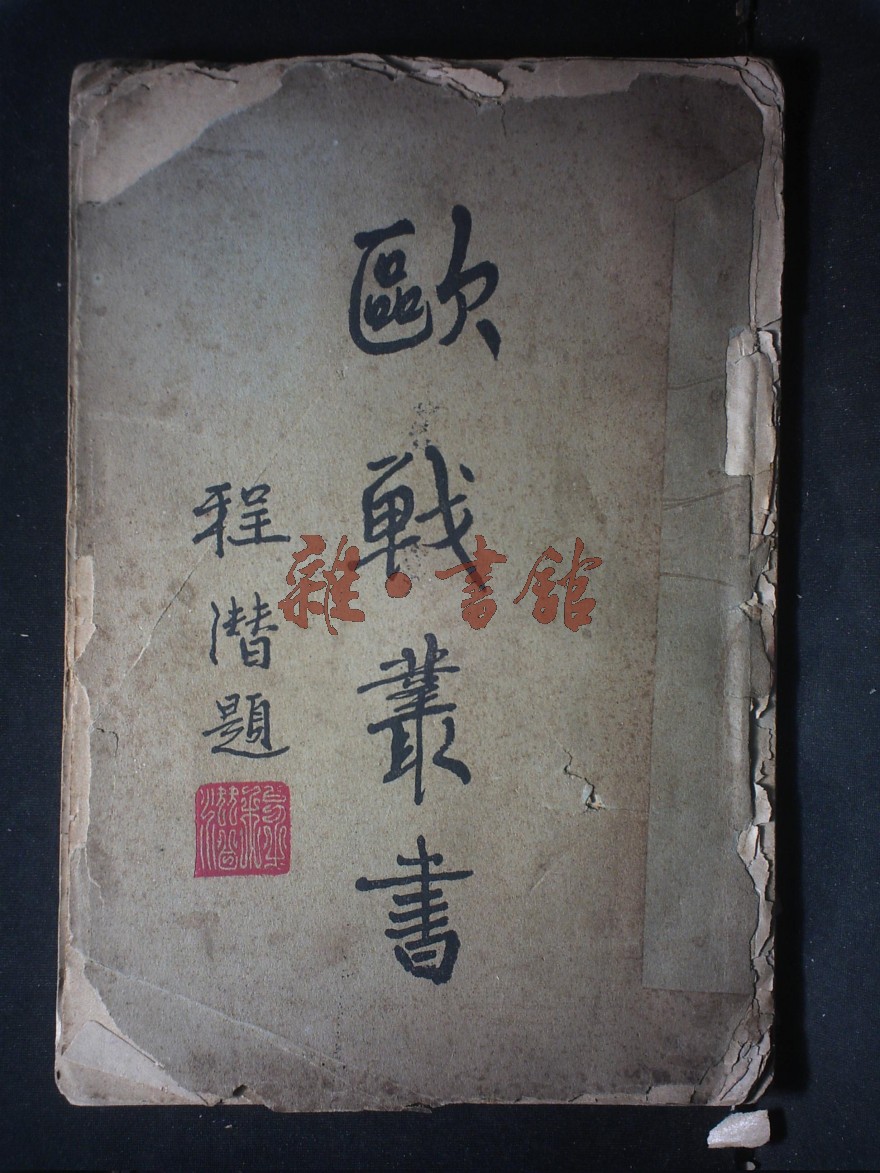 歐戰叢書
程潛題
程潛
雜·書館